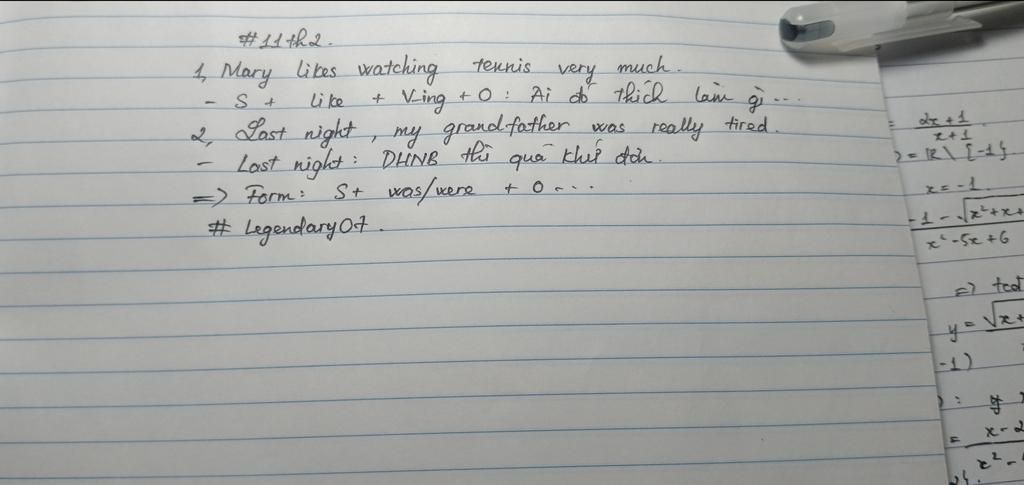 #11th2.
1, Mary likes watching tennis very much.
- S + like + V-ing + O : Ai đó thích làm gì ...
2, Last night, my grandfather was really tired.
- Last night : DHNB thì quá khứ đơn.
=> Form: S + was/were + O ...
# LegendaryOt.
= 2x + 1
x + 1
= R \ {-1}
x = -1
-1 - √x² + x +
x² - 5x + 6
=>
y = √x +
-1)
= x - 2
x² -